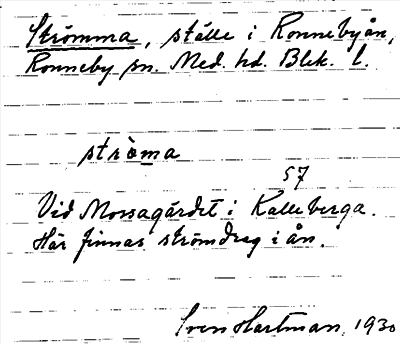 Strömma, ställe i Ronnebyån,
Ronneby sn. Med. hd. Blek. l.
ströma
57
Vid Mossagårdet i Kalleberga.
Här finnas strömdrag i ån.
Sven Hartman, 1930